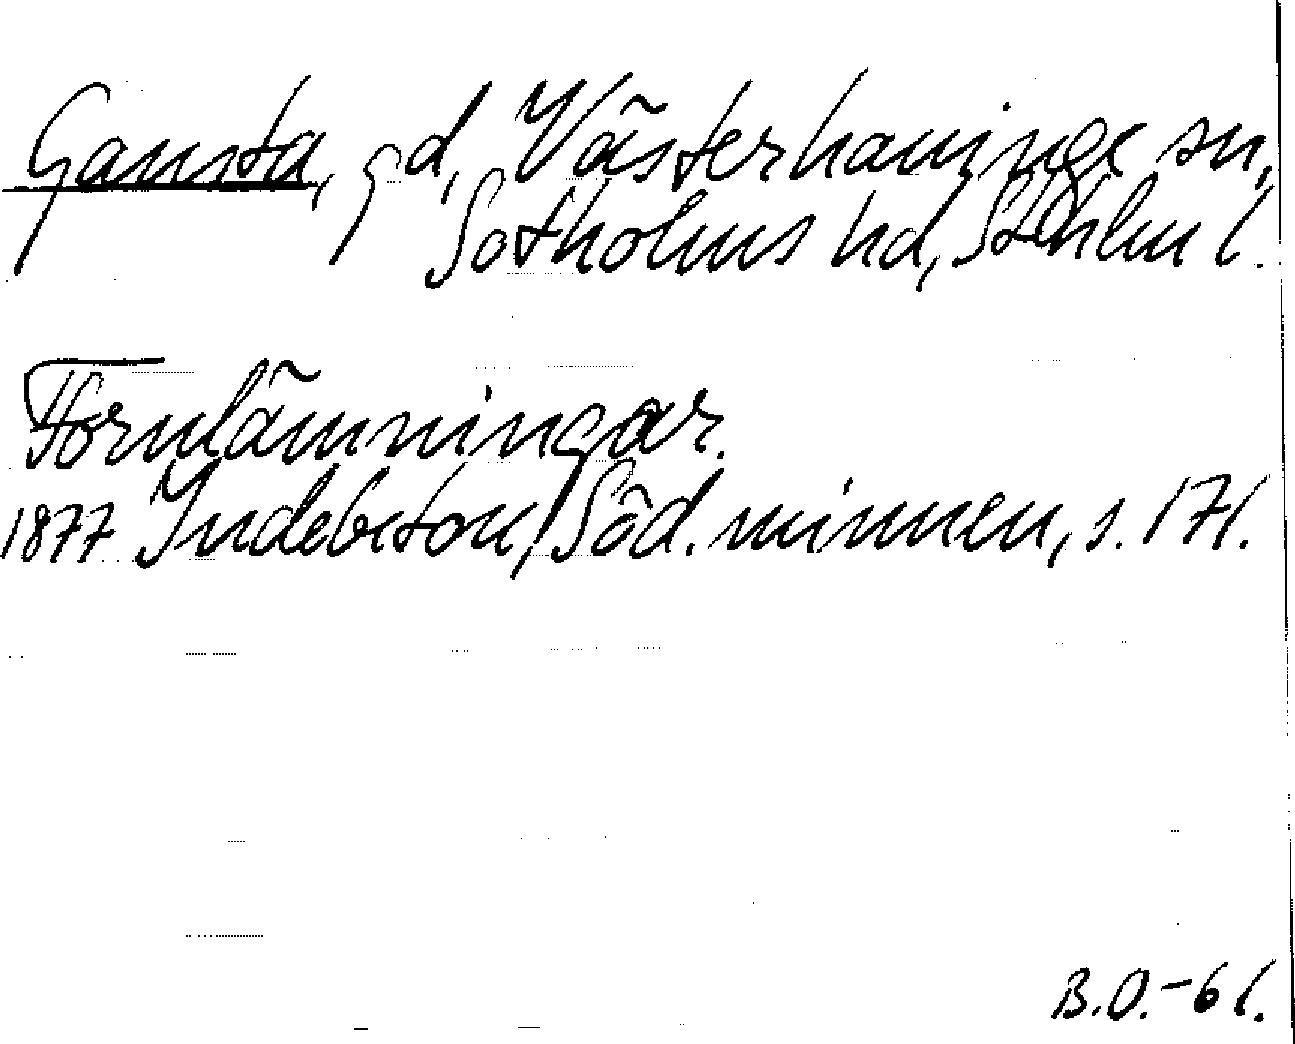 Gansta, gd, Västerhaninge sn,
Sotholms hd, Sthlm l.
Fornlämningar.
1877 Indebetou, Söd. minnen, s. 171.
B.O.-61.